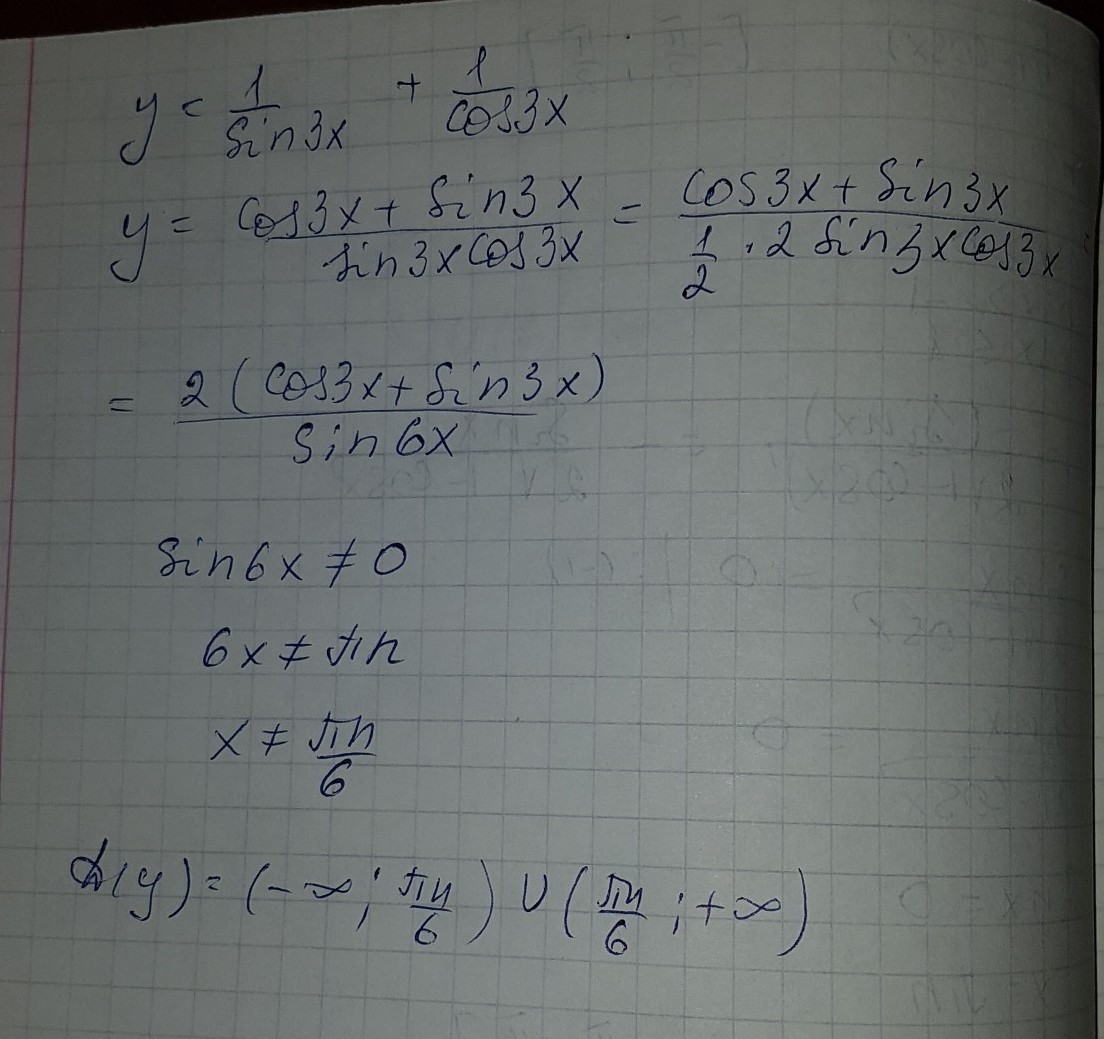 y = 1/sin3x + 1/cos3x
y = (cos3x + sin3x)/(sin3x cos3x) = (cos3x + sin3x)/(1/2 · 2 sin3x cos3x) =
= 2(cos3x + sin3x)/sin6x
sin6x ≠ 0
6x ≠ πn
x ≠ πn/6
D(y) = (-∞; πn/6) ∪ (πn/6; +∞)